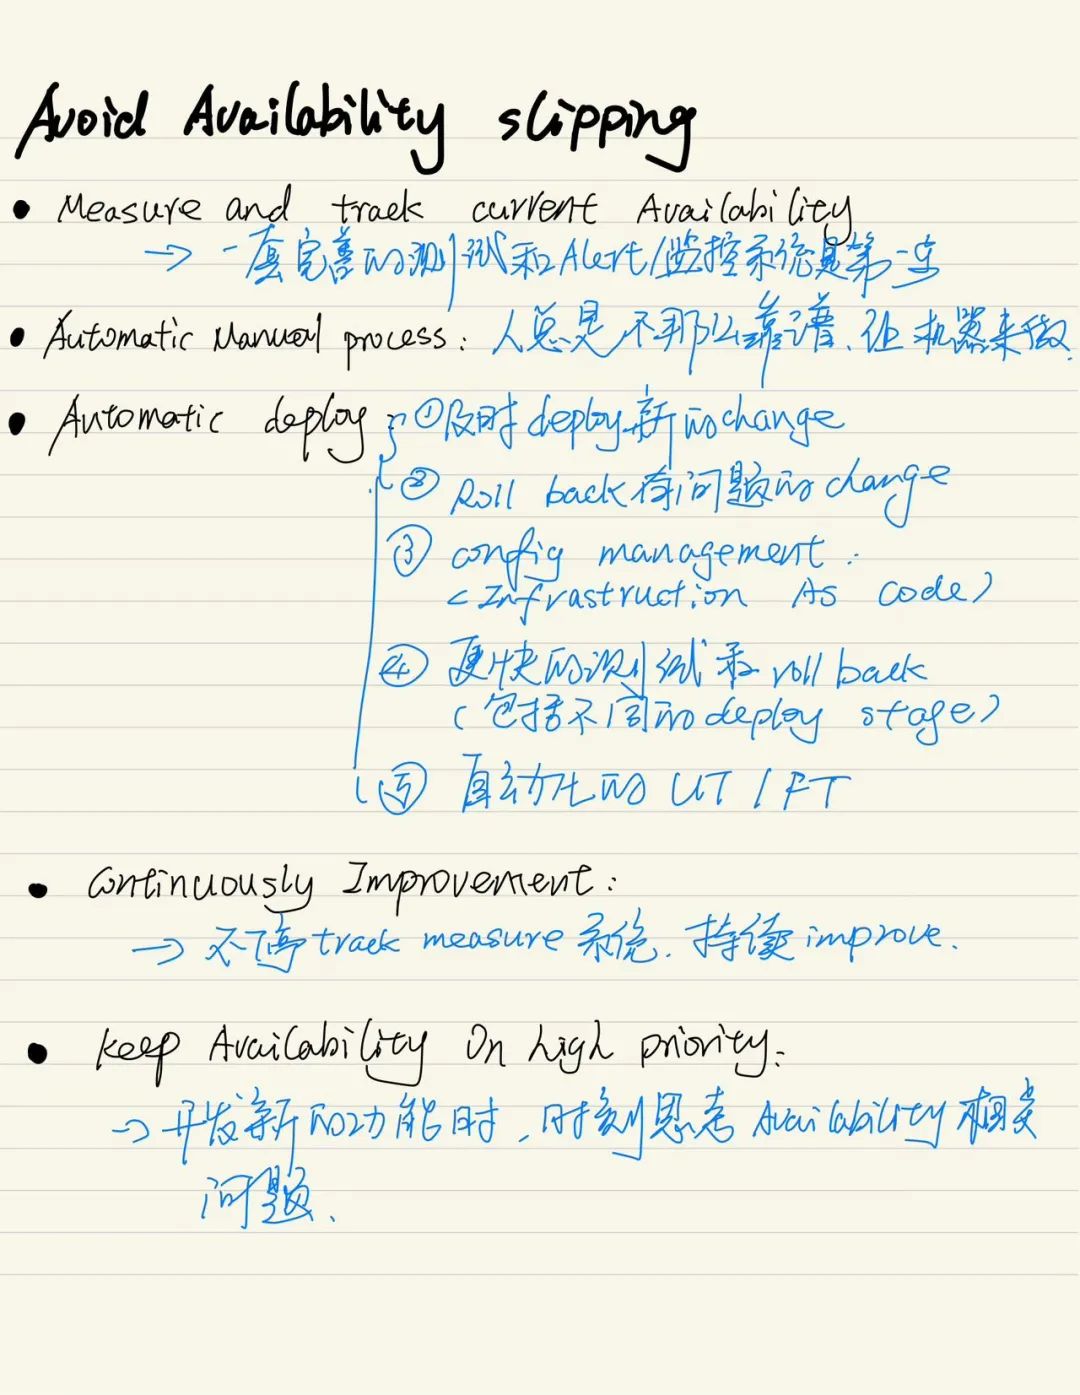 Avoid Availability slipping
• Measure and track current Availability
→ 一套完善的测试和Alert/监控系统是第一步
• Automatic Manual process: 人总是不那么靠谱、让机器来做
• Automatic deploy: ①及时deploy新的change
② Roll back有问题的change
③ config management:
<Infrastruction As code>
④ 更快的测试和roll back
(包括不同的deploy stage)
⑤ 自动化的 UT / FT
• Continuously Improvement:
→ 不停track measure系统. 持续improve.
• Keep Availability On high priority:
→ 开发新的功能时, 时刻思考 Availability 相关
问题.